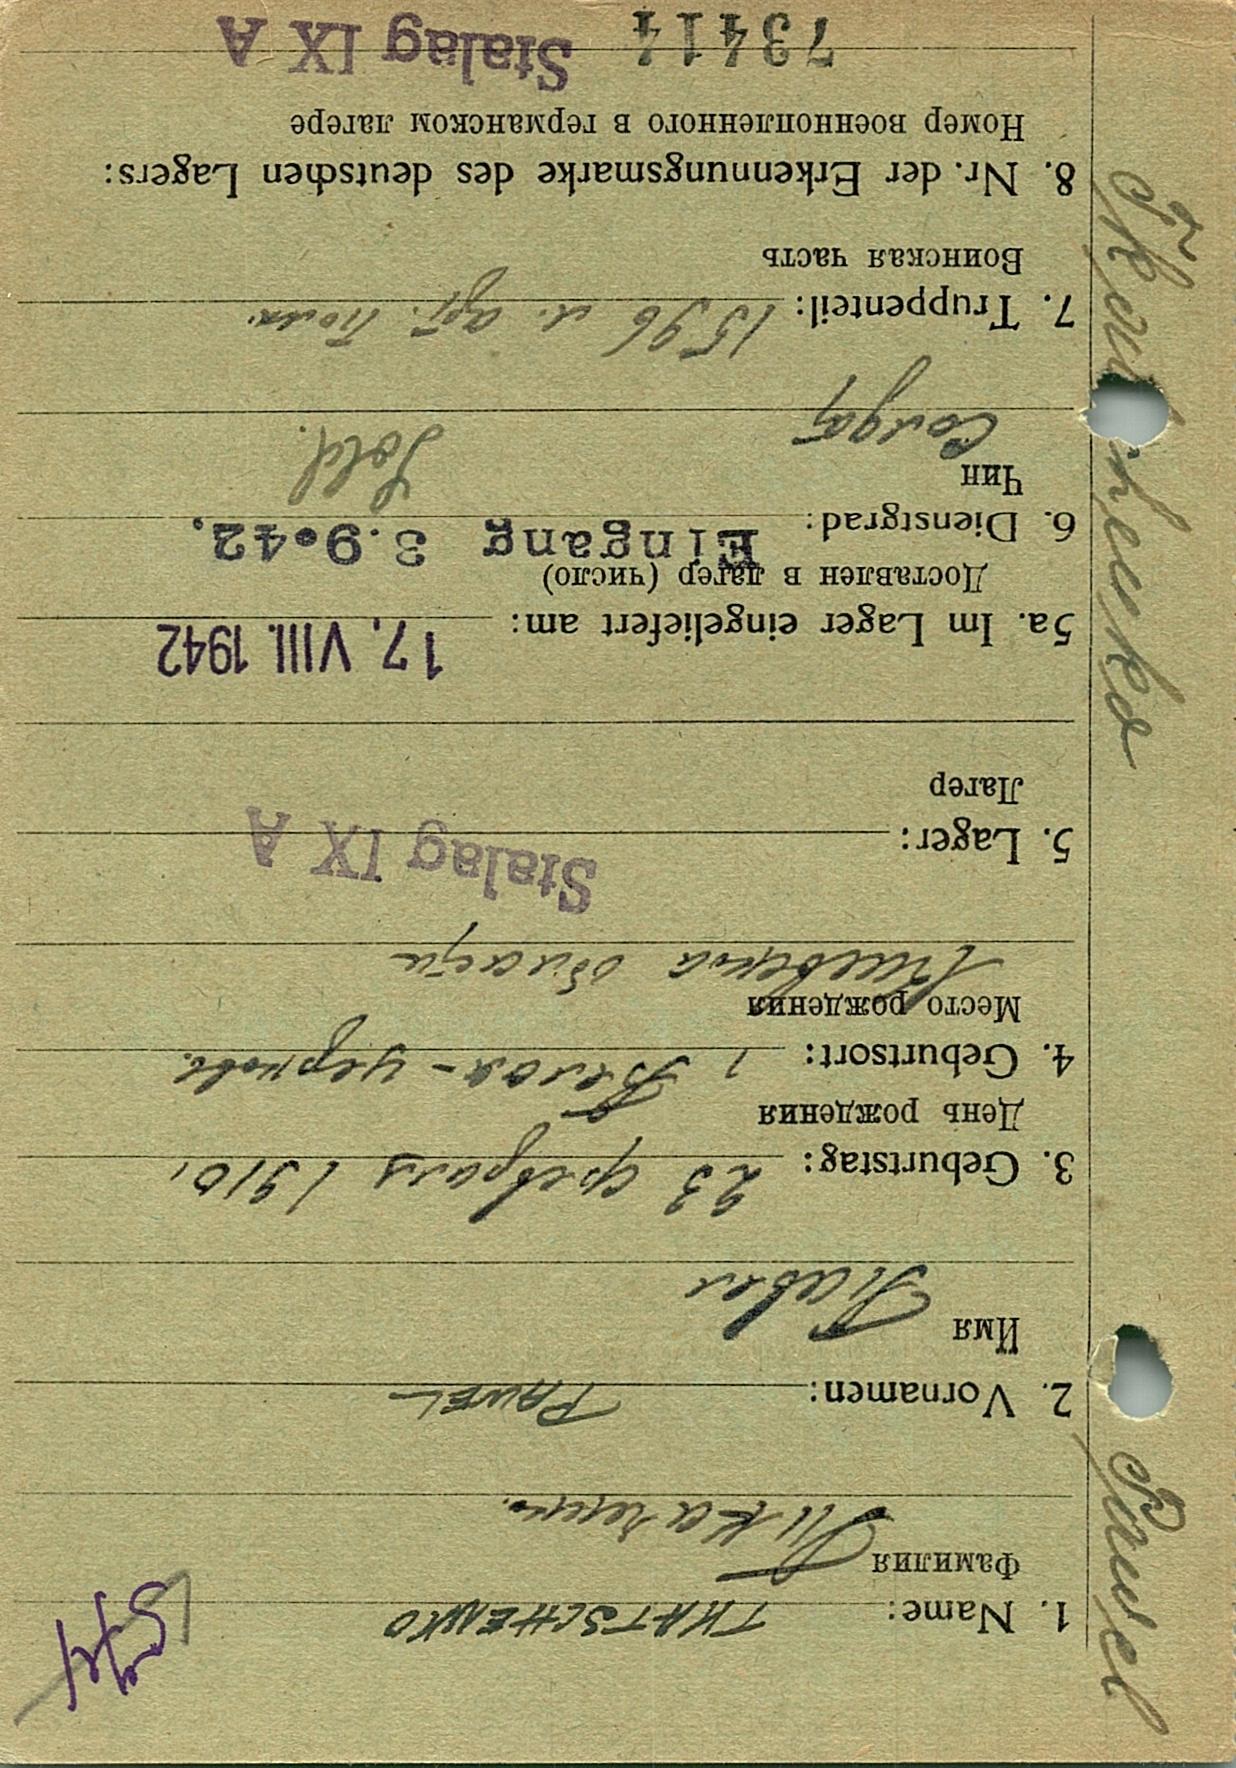 1. Name: TKATSCHENKO
Фамилия
Ткаченко.
2. Vornamen: PAWEL
Имя
Павел
3. Geburtstag: 23 февраля 1910,
День рождения
4. Geburtsort: Белая-церковь.
Место рождения
Киевская области
Stalag IX A
5. Lager:
Лагер
17. VIII. 1942
5a. Im Lager eingeliefert am:
Доставлен в лагер (число)
Eingang 3.9.42.
6. Dienstgrad:
Чин
Sold.
Солдат
7. Truppenteil: 1596 арт. Полк.
Воинская часть
8. Nr. der Erkennungsmarke des deutschen Lagers:
Номер военнопленного в германском лагере
73414 Stalag IX A
Pawel